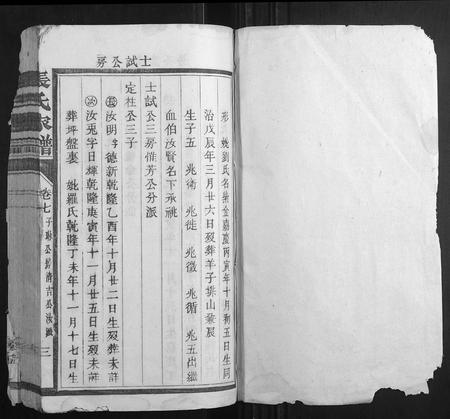 士試公房
形 妣劉氏名猪金嘉慶丙寅年十月初五日生同
治戊辰年三月廿六日歿葬羊子排山㒸辰
生子五 兆衛 兆徙 兆徵 兆循 兆五出繼
血伯汝賢名下承祧
士試公三房惟芳公分派
定柱公三子
長汝明字德新乾隆乙酉年十月廿二日生歿葬未詳
汝兎字日煇乾隆庚寅年十一月廿五日生歿未詳
葬坪盤妻 妣羅氏乾隆丁未年十一月十七日生
長氏家譜
卷七
子琳公經濟吉公汝
三